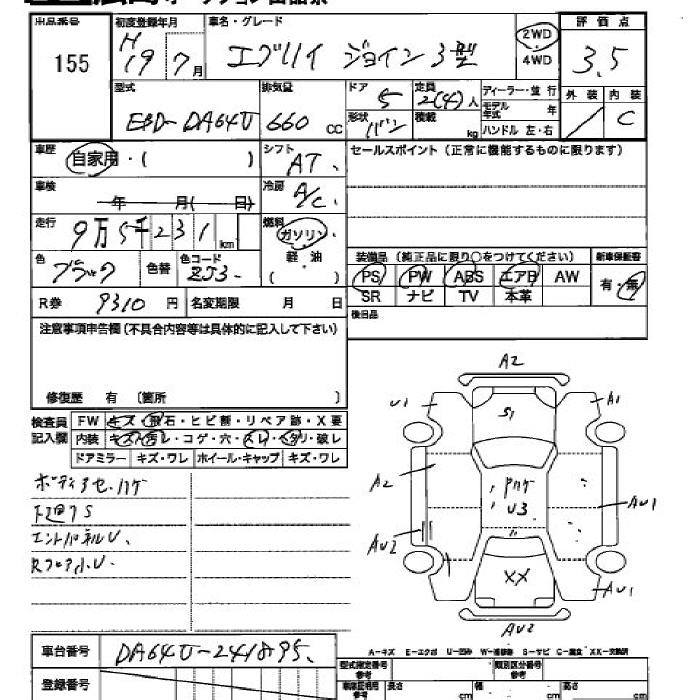 出品番号 初度登録年月 車名・グレード 評価点
155 H19 7月 エブリイ ジョイン3型 2WD 4WD 3.5
型式 排気量 ドア 5 定員 2(4)人 ディーラー・並行 外装 内装
EBD-DA64V 660 CC 形状 バン 積載 kg モデル年式 年 ハンドル 左・右 C
車歴 自家用・( ) シフト AT. セールスポイント(正常に機能するものに限ります)
車検 年 月( 日) 冷房 A/C.
走行 9万5千231km 燃料 ガソリン・軽油 ( )
装備品(純正品に限り○をつけてください) 新車保証書
色 ブラック 色替 色コード ZJ3- PS PW ABS エアB AW 有・無
SR ナビ TV 本革
R券 9310円 名変期限 月 日 後日品
注意事項申告欄(不具合内容等は具体的に記入して下さい)
修復歴 有 〔箇所 〕
検査員記入欄 FW キズ・飛石・ヒビ割・リペア跡・X要
内装 キズ・汚レ・コゲ・穴・スレ・ヘタリ・破レ
ドアミラー キズ・ワレ ホイール・キャップ キズ・ワレ
ボディアセ.ハゲ
下廻りS
エンドパネルU.
A2
U1 S1 A1
A2 U3 AU1
AU2 XX AU1
AU2
A-キズ E-エクボ U-凹み W-補修跡 S-サビ C-腐食 XX-交換済
車台番号 DA64V-241895.
登録番号
型式指定番号 参考 類別区分番号 参考
長さ cm 幅 cm 高さ cm